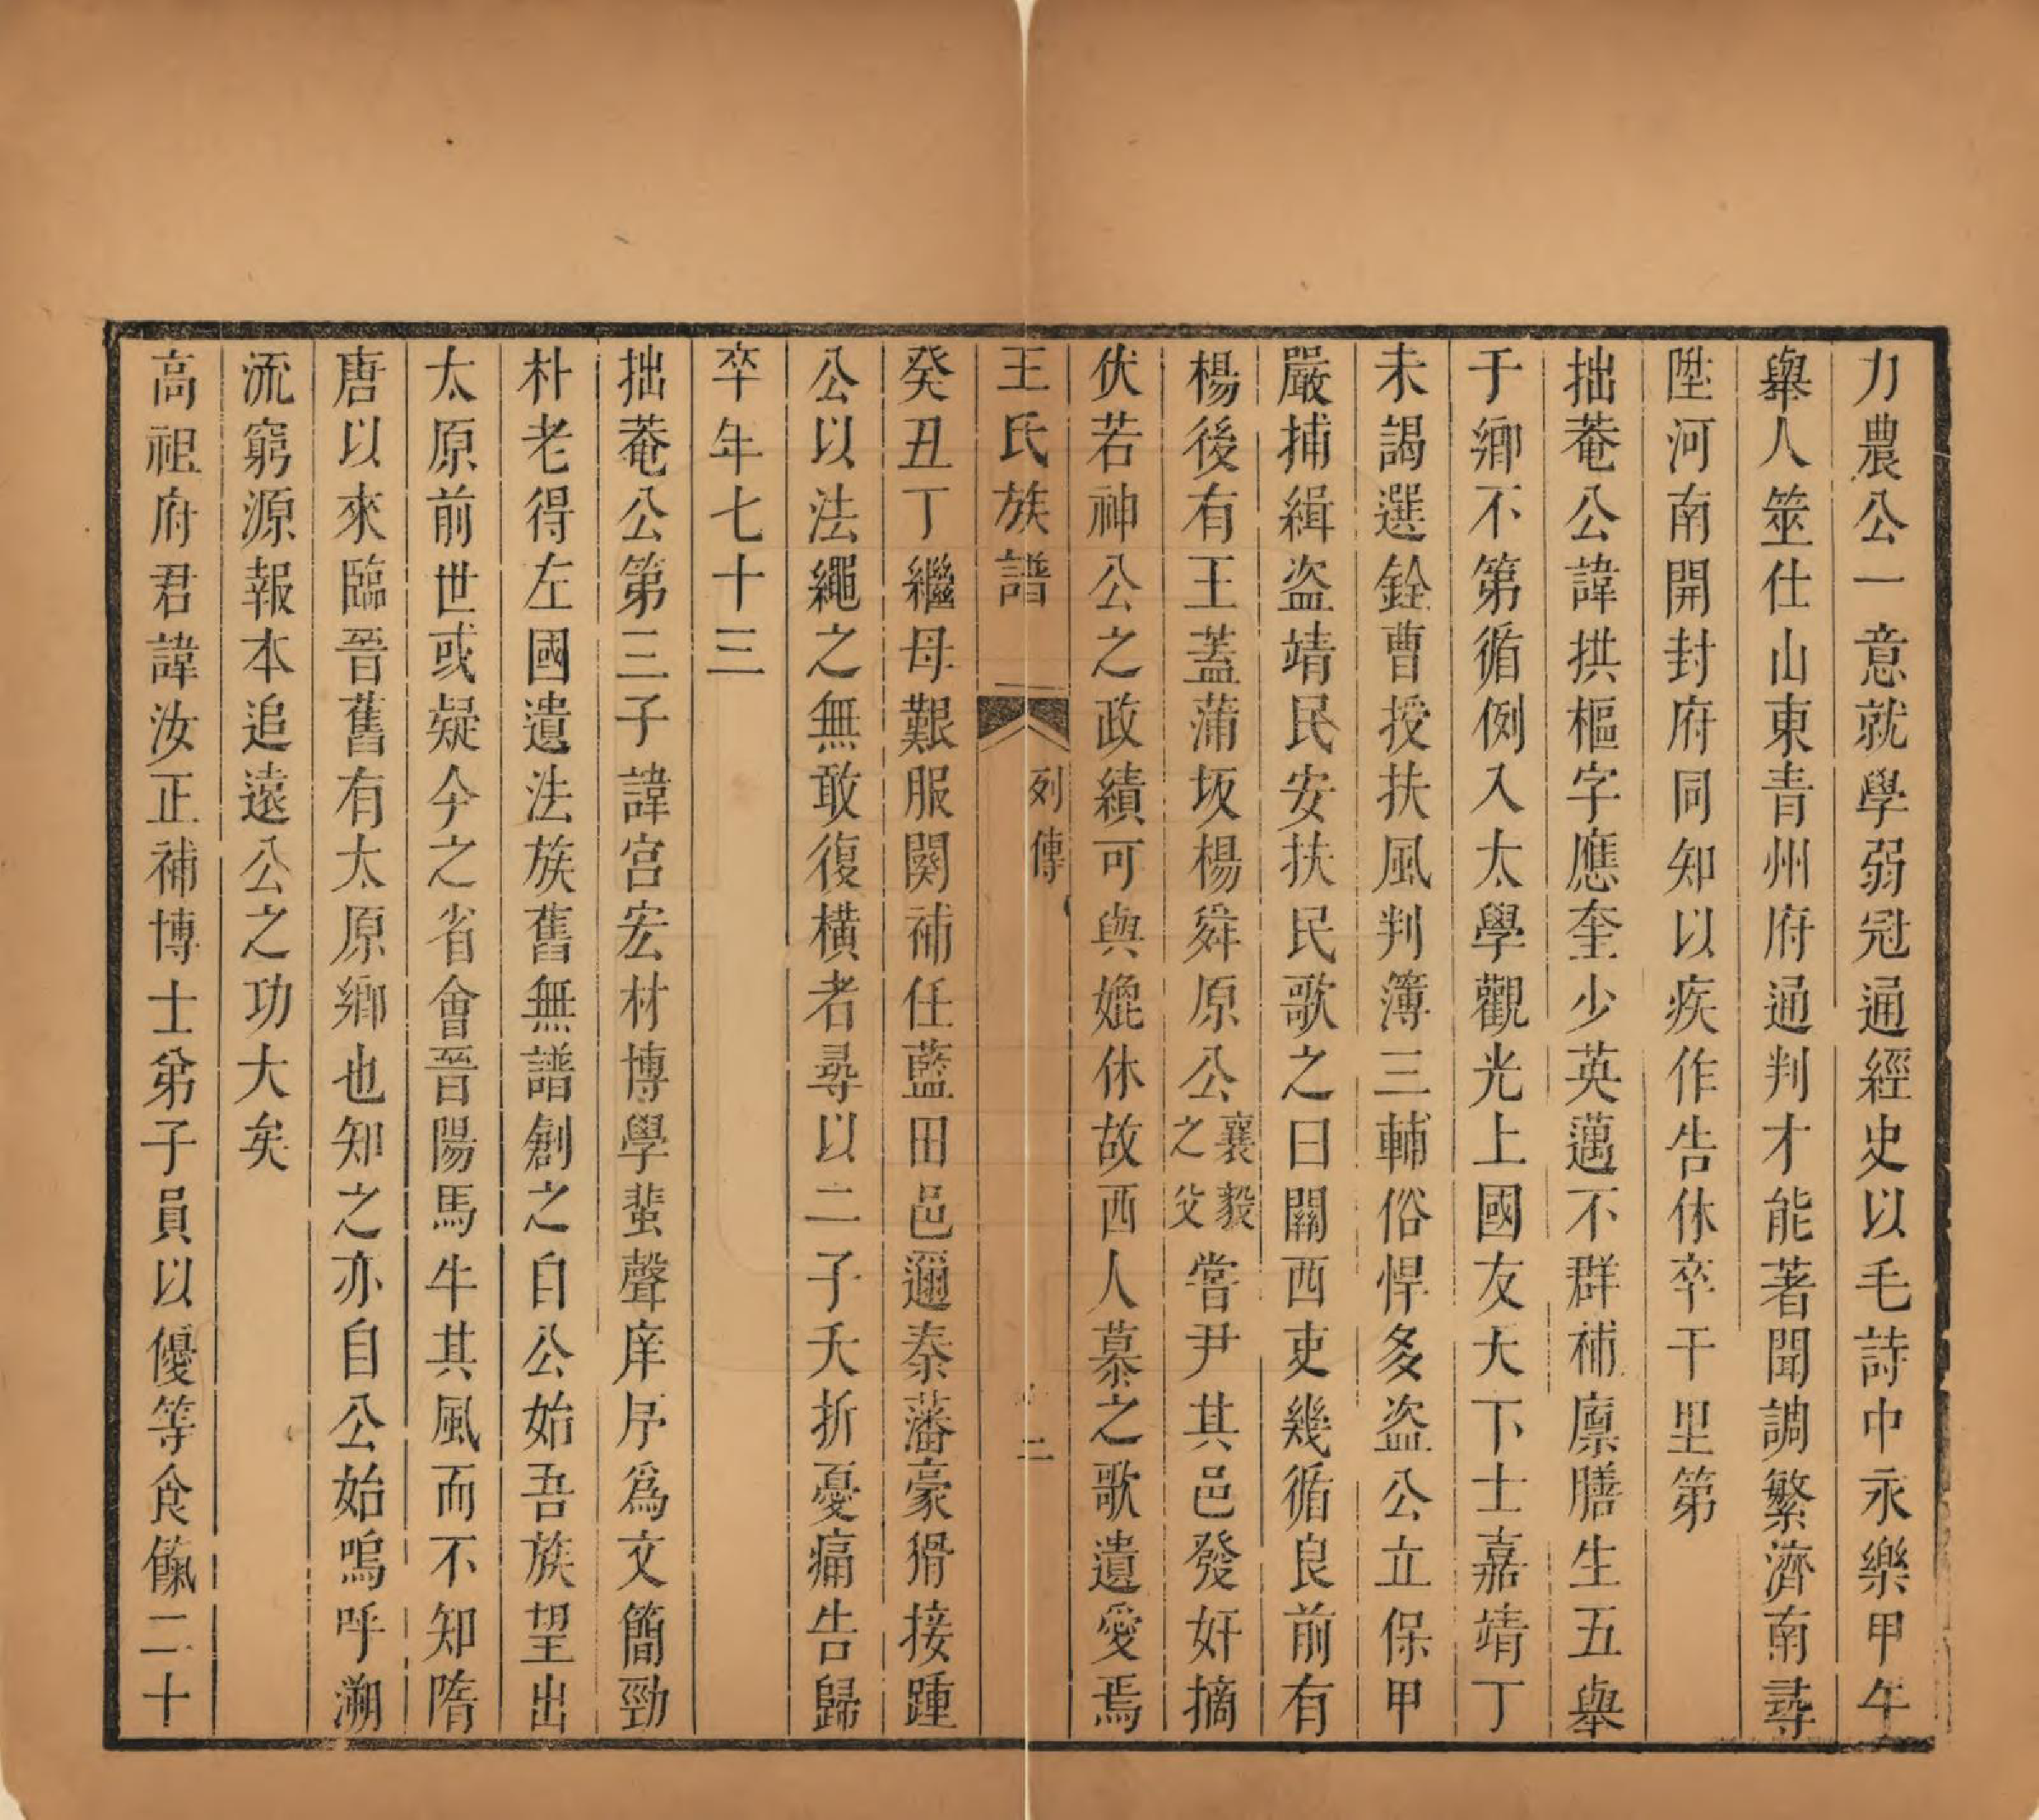 力農公一意就學弱冠通經史以毛詩中永樂甲午
舉人筮仕山東青州府通判才能著聞調繁濟南尋
陞河南開封府同知以疾作告休卒于里第
拙菴公諱拱樞字應奎少英邁不群補廪膳生五舉
于鄉不第循例入太學觀光上國友天下士嘉靖丁
未謁選銓曹授扶風判簿三輔俗悍多盗公立保甲
嚴捕緝盗靖民安扶民歌之曰關西吏幾循良前有
楊後有王蓋蒲坂楊舜原公襄毅之父嘗尹其邑發奸摘
伏若神公之政績可與媲休故西人慕之歌遺愛焉
王氏族譜 列傳 二
癸丑丁繼母艱服闋補任藍田邑邇秦藩豪猾接踵
公以法繩之無敢復橫者尋以二子夭折憂痛告歸
卒年七十三
拙菴公第三子諱宫宏材博學蜚聲庠序爲文簡勁
朴老得左國遺法族舊無譜創之自公始吾族望出
太原前世或疑今之省會晉陽馬牛其風而不知隋
唐以來臨晉舊有太原鄉也知之亦自公始嗚呼溯
流窮源報本追遠公之功大矣
高祖府君諱汝正補博士弟子員以優等食餼二十